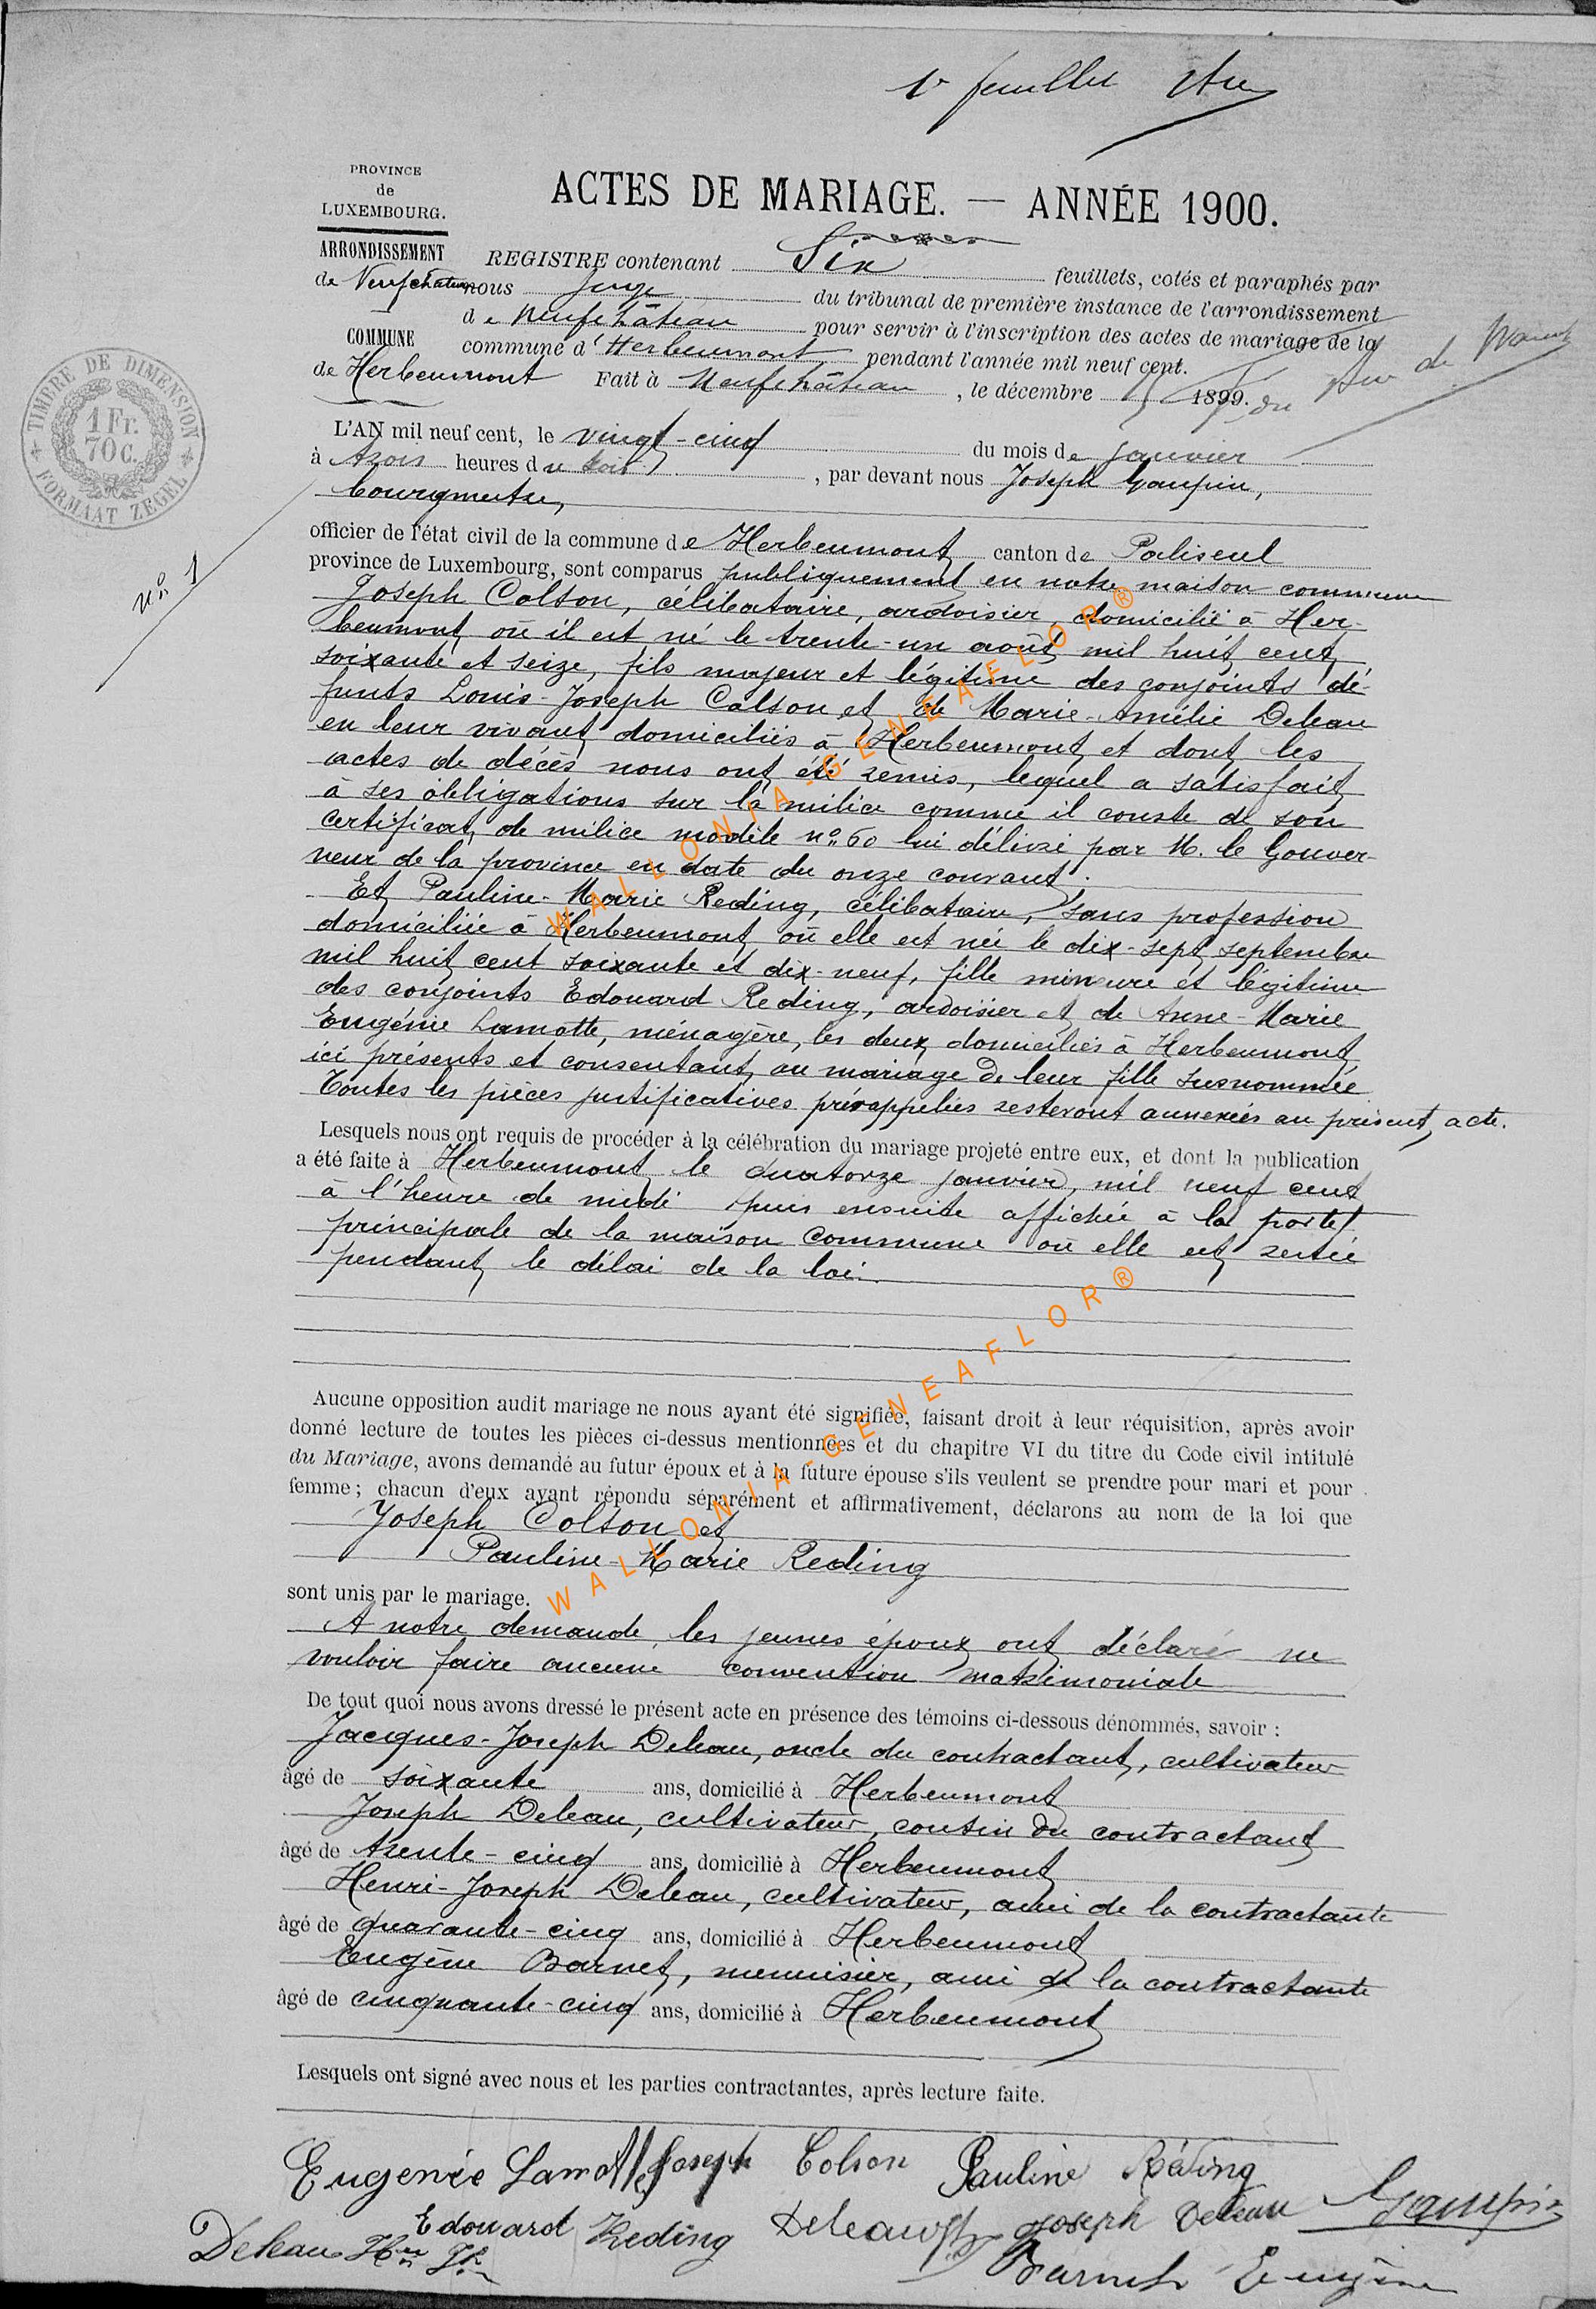 1r feuillet
PROVINCE
de
LUXEMBOURG.
ARRONDISSEMENT
de Neufchateau
COMMUNE
de Herbeumont
ACTES DE MARIAGE. — ANNÉE 1900.
REGISTRE contenant Six feuillets, cotés et paraphés par
nous Juge du tribunal de première instance de l'arrondissement
de Neufchâteau pour servir à l'inscription des actes de mariage de la
commune d'Herbeumont pendant l'année mil neuf cent.
Fait à Neufchâteau, le décembre 1899.
TIMBRE DE DIMENSION
1 Fr.
70 C.
FORMAAT ZEGEL
L'AN mil neuf cent, le vingt-cinq du mois de janvier
à trois heures du soir, par devant nous Joseph Gaupin,
bourgmestre,
officier de l'état civil de la commune de Herbeumont canton de Paliseul
province de Luxembourg, sont comparus publiquement en notre maison commune
n° 1
Joseph Colson, célibataire, ardoisier domicilié à Her-
beumont où il est né le trente-un août mil huit cent
soixante et seize, fils majeur et légitime des conjoints dé-
funts Louis-Joseph Colson et de Marie-Amélie Deleau
en leur vivant domiciliés à Herbeumont et dont les
actes de décès nous ont été remis, lequel a satisfait
à ses obligations sur la milice comme il conste de son
certificat de milice modèle n° 60 lui délivré par M. le Gouver-
neur de la province en date du onze courant.
Et Pauline-Marie Reding, célibataire, sans profession
domiciliée à Herbeumont où elle est née le dix-sept septembre
mil huit cent soixante et dix-neuf, fille mineure et légitime
des conjoints Edouard Reding, ardoisier et de Anne-Marie
Eugénie Lamotte, ménagère, les deux domiciliés à Herbeumont
ici présents et consentant au mariage de leur fille susnommée
Toutes les pièces justificatives prérappelées resteront annexées au présent acte.
Lesquels nous ont requis de procéder à la célébration du mariage projeté entre eux, et dont la publication
a été faite à Herbeumont le quatorze janvier, mil neuf cent
à l'heure de midi puis ensuite affichée à la porte
principale de la maison commune où elle est restée
pendant le délai de la loi.
Aucune opposition audit mariage ne nous ayant été signifiée, faisant droit à leur réquisition, après avoir
donné lecture de toutes les pièces ci-dessus mentionnées et du chapitre VI du titre du Code civil intitulé
du Mariage, avons demandé au futur époux et à la future épouse s'ils veulent se prendre pour mari et pour
femme; chacun d'eux ayant répondu séparément et affirmativement, déclarons au nom de la loi que
Joseph Colson et
Pauline-Marie Reding
sont unis par le mariage.
A notre demande, les jeunes époux ont déclaré ne
vouloir faire aucune convention matrimoniale
De tout quoi nous avons dressé le présent acte en présence des témoins ci-dessous dénommés, savoir :
Jacques-Joseph Deleau, oncle du contractant, cultivateur
âgé de soixante ans, domicilié à Herbeumont
Joseph Deleau, cultivateur, cousin du contractant
âgé de trente-cinq ans, domicilié à Herbeumont
Henri-Joseph Deleau, cultivateur, ami de la contractante
âgé de quarante-cinq ans, domicilié à Herbeumont
Eugène Barnet, menuisier, ami de la contractante
âgé de cinquante-cinq ans, domicilié à Herbeumont
Lesquels ont signé avec nous et les parties contractantes, après lecture faite.
Eugenie Lamotte Joseph Colson Pauline Réding
Edouard Reding Deleau Joseph Deleau Gaupin
Deleau Hri Jh Barnet Eugène
WALLONIA-GENEAFLOR®
WALLONIA-GENEAFLOR®